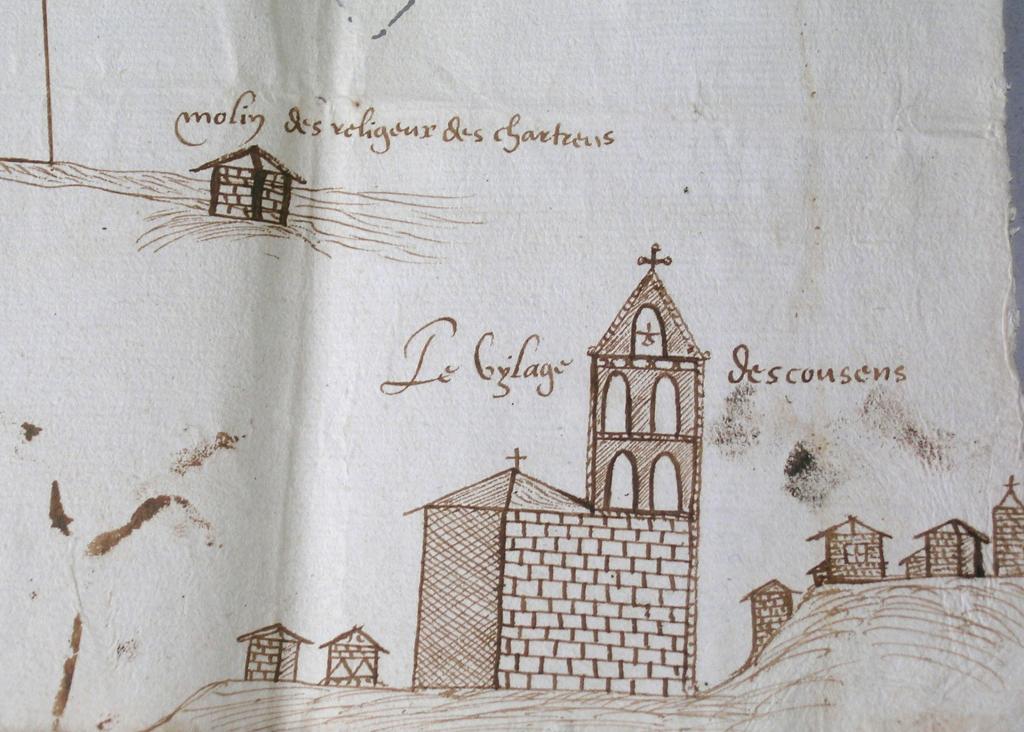 molin des religeux des chartreus
Le vylage descousens